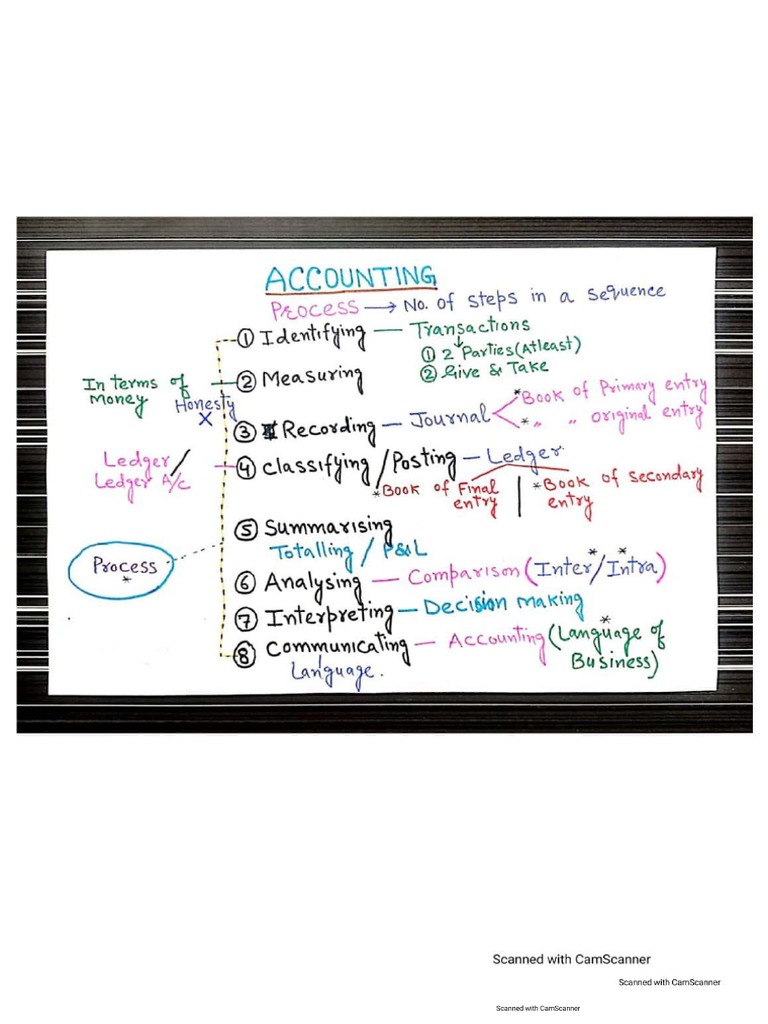 ACCOUNTING
Process → No. of steps in a sequence
① Identifying — Transactions
① 2 Parties (Atleast)
② Give & Take
In terms of
money
② Measuring
Honesty
X
③ Recording — Journal
* Book of Primary entry
* " " original entry
Ledger /
Ledger A/c
④ Classifying / Posting — Ledger
* Book of Final
entry
* Book of secondary
entry
⑤ Summarising
Totalling / P&L
Process
*
⑥ Analysing — Comparison (Inter* / Intra*)
⑦ Interpreting — Decision making
⑧ Communicating — Accounting (Language* of
Business)
Language.
Scanned with CamScanner
Scanned with CamScanner
Scanned with CamScanner